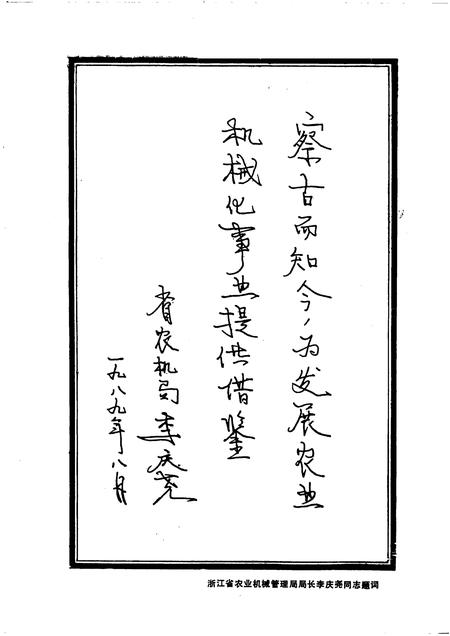 察古而知今，为发展农业
机械化事业提供借鉴
省农机局李庆尧
一九八九年八月
浙江省农业机械管理局局长李庆尧同志题词